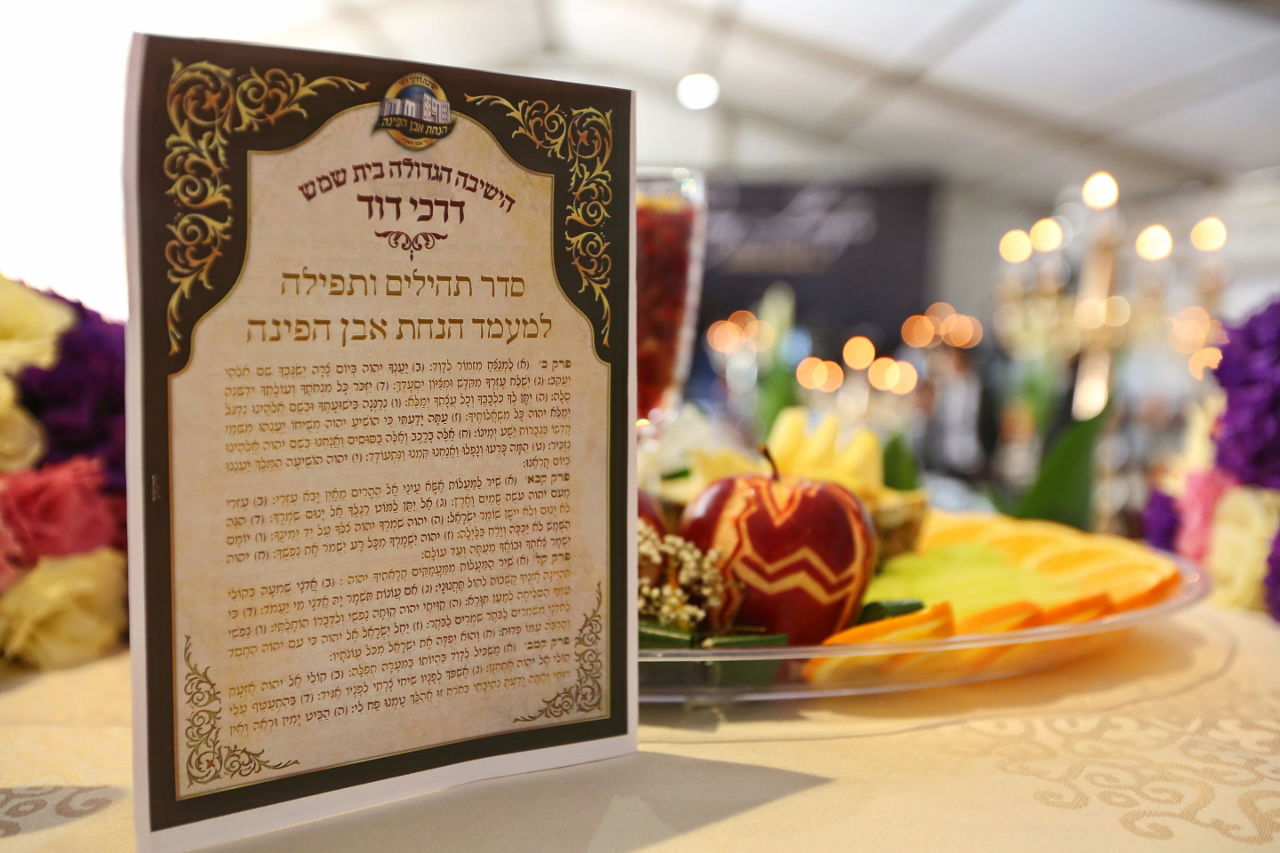 הנחת אבן הפינה
הישיבה הגדולה בית שמש
דרכי דוד
סדר תהילים ותפילה
למעמד הנחת אבן הפינה
פרק כ' (א) לַמְנַצֵּחַ מִזְמוֹר לְדָוִד: (ב) יַעַנְךָ יהוה בְּיוֹם צָרָה יְשַׂגֶּבְךָ שֵׁם אֱלֹהֵי
יַעֲקֹב: (ג) יִשְׁלַח עֶזְרְךָ מִקֹּדֶשׁ וּמִצִּיּוֹן יִסְעָדֶךָּ: (ד) יִזְכֹּר כָּל מִנְחֹתֶיךָ וְעוֹלָתְךָ יְדַשְּׁנֶה
סֶלָה: (ה) יִתֶּן לְךָ כִלְבָבֶךָ וְכָל עֲצָתְךָ יְמַלֵּא: (ו) נְרַנְּנָה בִּישׁוּעָתֶךָ וּבְשֵׁם אֱלֹהֵינוּ נִדְגֹּל
יְמַלֵּא יהוה כָּל מִשְׁאֲלוֹתֶיךָ: (ז) עַתָּה יָדַעְתִּי כִּי הוֹשִׁיעַ יהוה מְשִׁיחוֹ יַעֲנֵהוּ מִשְּׁמֵי
קָדְשׁוֹ בִּגְבֻרוֹת יֵשַׁע יְמִינוֹ: (ח) אֵלֶּה בָרֶכֶב וְאֵלֶּה בַסּוּסִים וַאֲנַחְנוּ בְּשֵׁם יהוה אֱלֹהֵינוּ
נַזְכִּיר: (ט) הֵמָּה כָּרְעוּ וְנָפָלוּ וַאֲנַחְנוּ קַּמְנוּ וַנִּתְעוֹדָד: (י) יהוה הוֹשִׁיעָה הַמֶּלֶךְ יַעֲנֵנוּ
בְיוֹם קָרְאֵנוּ:
פרק קכא' (א) שִׁיר לַמַּעֲלוֹת אֶשָּׂא עֵינַי אֶל הֶהָרִים מֵאַיִן יָבֹא עֶזְרִי: (ב) עֶזְרִי
מֵעִם יהוה עֹשֵׂה שָׁמַיִם וָאָרֶץ: (ג) אַל יִתֵּן לַמּוֹט רַגְלֶךָ אַל יָנוּם שֹׁמְרֶךָ: (ד) הִנֵּה
לֹא יָנוּם וְלֹא יִישָׁן שׁוֹמֵר יִשְׂרָאֵל: (ה) יהוה שֹׁמְרֶךָ יהוה צִלְּךָ עַל יַד יְמִינֶךָ: (ו) יוֹמָם
הַשֶּׁמֶשׁ לֹא יַכֶּכָּה וְיָרֵחַ בַּלָּיְלָה: (ז) יהוה יִשְׁמָרְךָ מִכָּל רָע יִשְׁמֹר אֶת נַפְשֶׁךָ: (ח) יהוה
יִשְׁמָר צֵאתְךָ וּבוֹאֶךָ מֵעַתָּה וְעַד עוֹלָם:
פרק קל' (א) שִׁיר הַמַּעֲלוֹת מִמַּעֲמַקִּים קְרָאתִיךָ יהוה: (ב) אֲדֹנָי שִׁמְעָה בְקוֹלִי
תִּהְיֶינָה אָזְנֶיךָ קַשֻּׁבוֹת לְקוֹל תַּחֲנוּנָי: (ג) אִם עֲוֹנוֹת תִּשְׁמָר יָהּ אֲדֹנָי מִי יַעֲמֹד: (ד) כִּי
עִמְּךָ הַסְּלִיחָה לְמַעַן תִּוָּרֵא: (ה) קִוִּיתִי יהוה קִוְּתָה נַפְשִׁי וְלִדְבָרוֹ הוֹחָלְתִּי: (ו) נַפְשִׁי
לַאדֹנָי מִשֹּׁמְרִים לַבֹּקֶר שֹׁמְרִים לַבֹּקֶר: (ז) יַחֵל יִשְׂרָאֵל אֶל יהוה כִּי עִם יהוה הַחֶסֶד
וְהַרְבֵּה עִמּוֹ פְדוּת: (ח) וְהוּא יִפְדֶּה אֶת יִשְׂרָאֵל מִכֹּל עֲוֹנֹתָיו:
פרק קמב' (א) מַשְׂכִּיל לְדָוִד בִּהְיוֹתוֹ בַמְּעָרָה תְפִלָּה: (ב) קוֹלִי אֶל יהוה אֶזְעָק
קוֹלִי אֶל יהוה אֶתְחַנָּן: (ג) אֶשְׁפֹּךְ לְפָנָיו שִׂיחִי צָרָתִי לְפָנָיו אַגִּיד: (ד) בְּהִתְעַטֵּף עָלַי
רוּחִי וְאַתָּה יָדַעְתָּ נְתִיבָתִי בְּאֹרַח זוּ אֲהַלֵּךְ טָמְנוּ פַח לִי: (ה) הַבֵּיט יָמִין וּרְאֵה וְאֵין